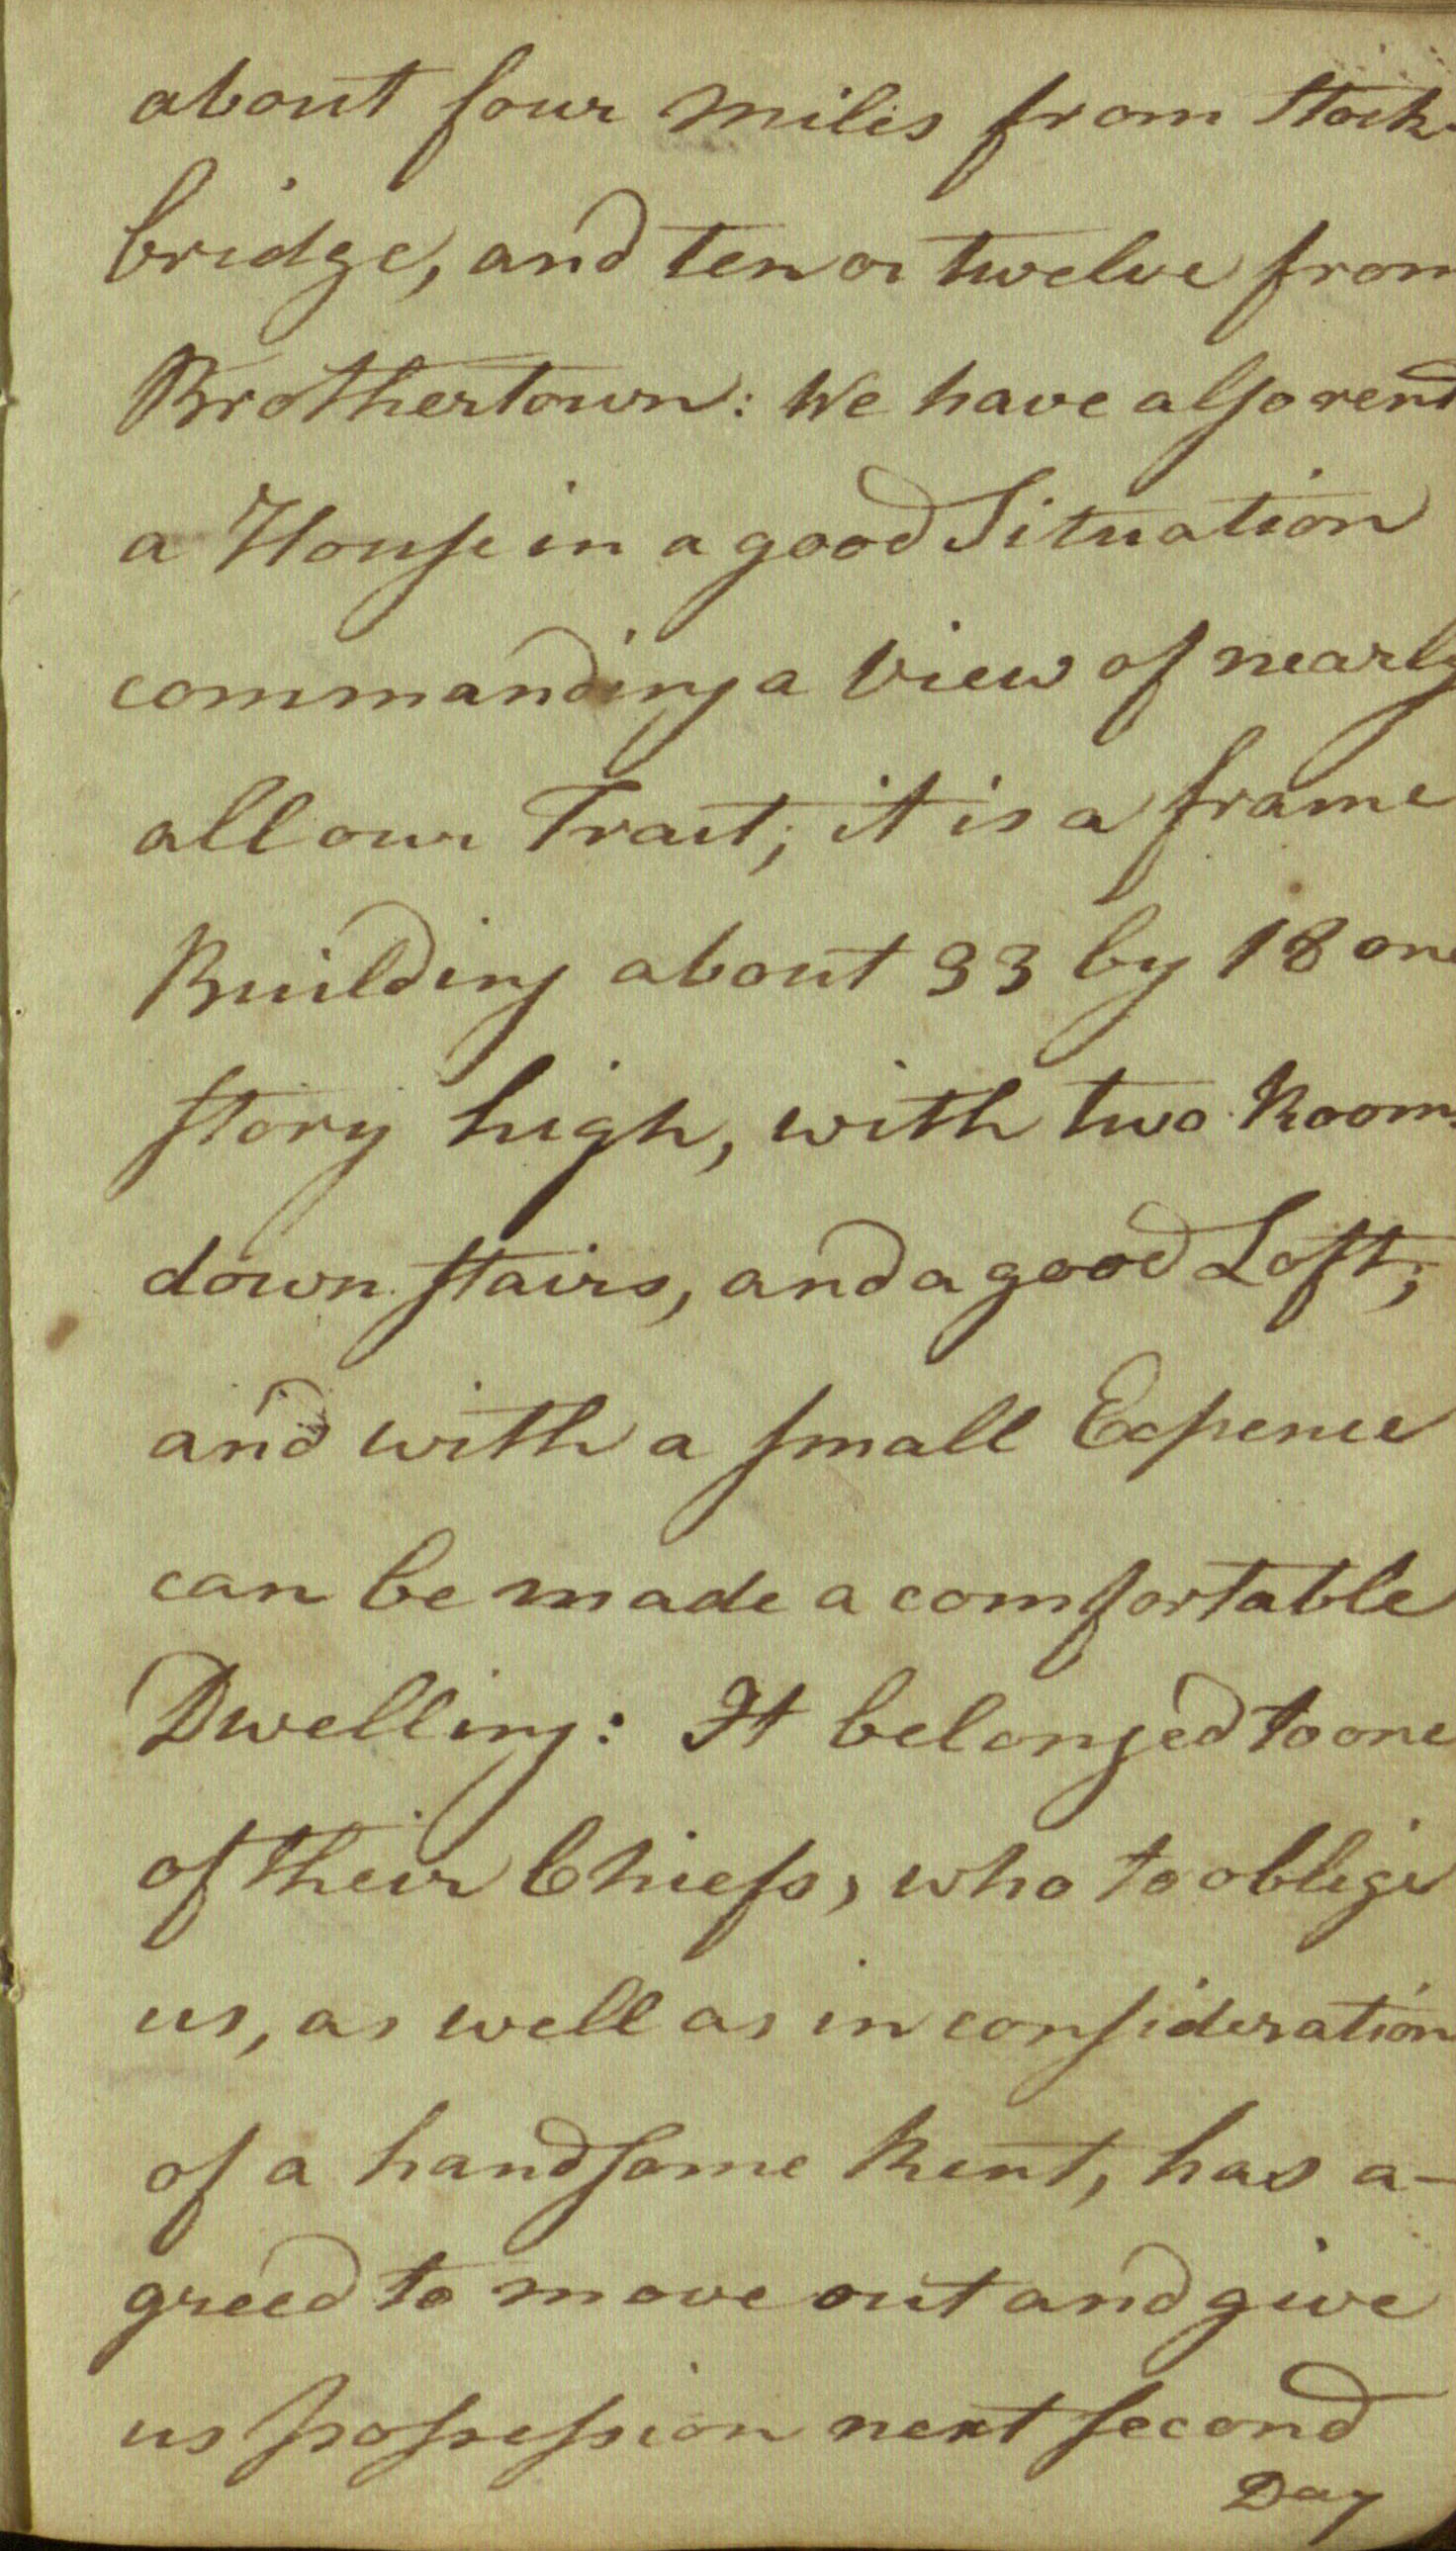 about four Miles from Stock-
bridge, and ten or twelve from
Brothertown: We have also rend
a House in a good Situation
commanding a View of nearly
all our Tract; it is a frame
Building about 33 by 18 one
story high, with two Rooms
down stairs, and a good Loft;
and with a small Expence
can be made a comfortable
Dwelling: It belonged to one
of their Chiefs, who to oblige
us, as well as in consideration
of a handsome Rent, has a-
greed to move out and give
us possession next second
Day